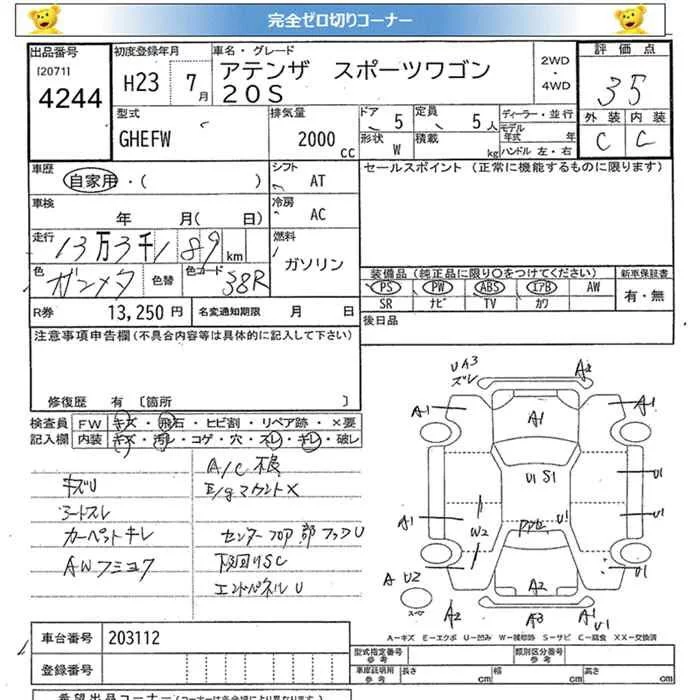 完全ゼロ切りコーナー
出品番号
[2071]
4244
初度登録年月
H23 7月
車名・グレード
アテンザ スポーツワゴン
20S
2WD
・
4WD
評価点
35
外装 内装
C C
型式
GHEFW
排気量
2000
cc
ドア 5
形状 W
定員 5人
積載 kg
ディーラー・並行
モデル年式 年
ハンドル 左・右
車歴
自家用・( )
シフト
AT
セールスポイント (正常に機能するものに限ります)
車検
年 月( 日)
冷房
AC
走行
13万3千189km
燃料
ガソリン
色
ガンメタ
色替
色コード
38R
装備品 (純正品に限り○をつけてください)
新車保証書
PS PW ABS エアB AW
有・無
SR ナビ TV カワ
R券
13,250円
名変通知期限 月 日
後日品
注意事項申告欄(不具合内容等は具体的に記入して下さい)
修復歴 有 〔箇所 〕
検査員
記入欄
FW キズ・飛石・ヒビ割・リペア跡・×要
内装 キズ・汚レ・コゲ・穴・スレ・キレ・破レ
A/C 不良
キズU
E/gマウントX
シートスレ
カーペットキレ
センターフロア部フックU
AWフミヨク
下回りSC
エンドパネルU
UA3
ズレ
A2
A1
A1
A1
U1 S1
U1
A1
W2
U1
U1
U1
A U2
スペア
A2
A2
A3
A1
U1
A-キズ E-エクボ U-凹ミ W-補修跡 S-サビ C-腐食 XX-交換済
車台番号
203112
登録番号
型式指定番号
参考
類別区分番号
参考
車庫証明用
参考
長さ cm
幅 cm
高さ cm
希望出品コーナー